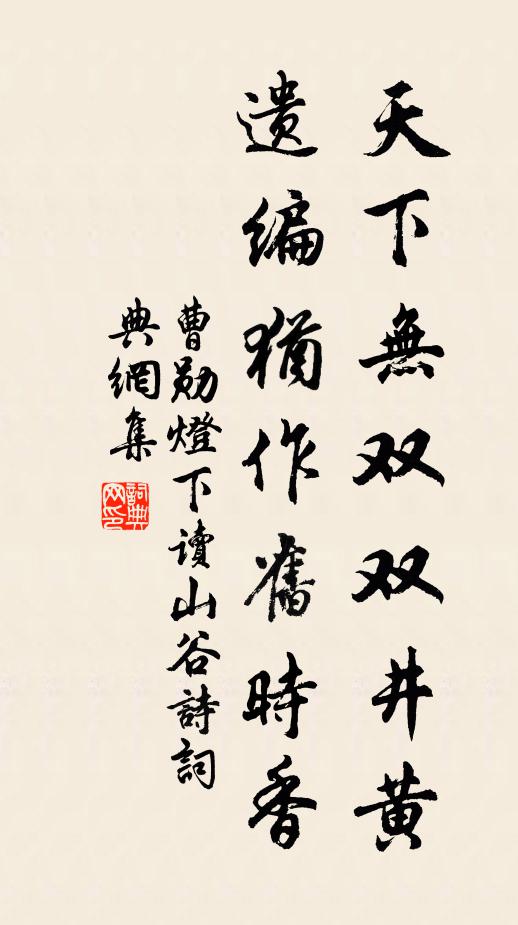 天下無双双井黄
遗编猶作舊時香
曹勋燈下讀山谷詩詞
典網集
詞典網印